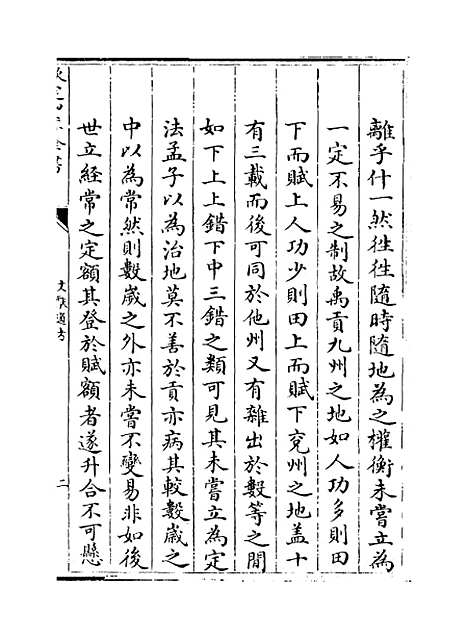 離乎什一然徃徃隨時隨地為之權衡未嘗立為
一定不易之制故禹貢九州之地如人功多則田
下而賦上人功少則田上而賦下兖州之地盖十
有三載而後可同於他州又有雜出於數等之間
如下上上錯下中三錯之類可見其未嘗立為定
法孟子以為治地莫不善於貢亦病其較數歲之
中以為常然則數歲之外亦未嘗不變易非如後
世立經常之定額其登於賦額者遂升合不可懸
文獻通考
二